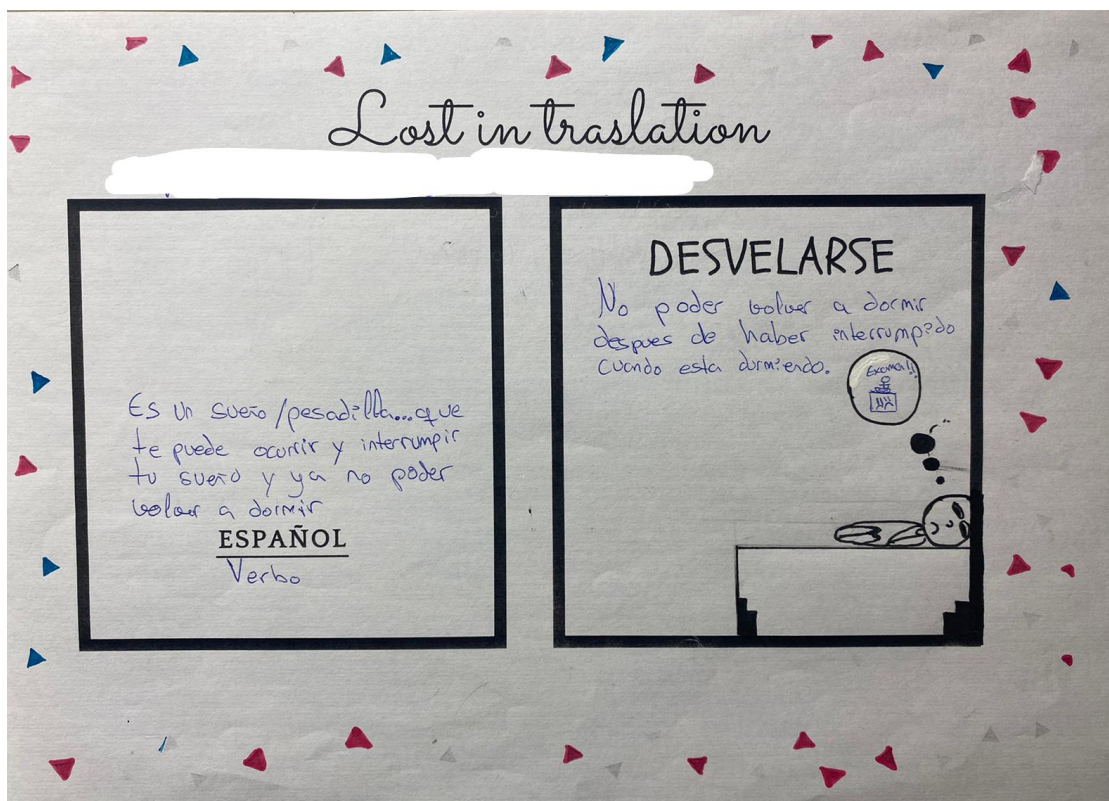 Lost in traslation
Es un sueño/pesadilla...que
te puede ocurrir y interrumpir
tu sueño y ya no poder
volver a dormir
ESPAÑOL
Verbo
DESVELARSE
No poder volver a dormir
despues de haber interrumpido
cuando esta durmiendo.
Examen!!